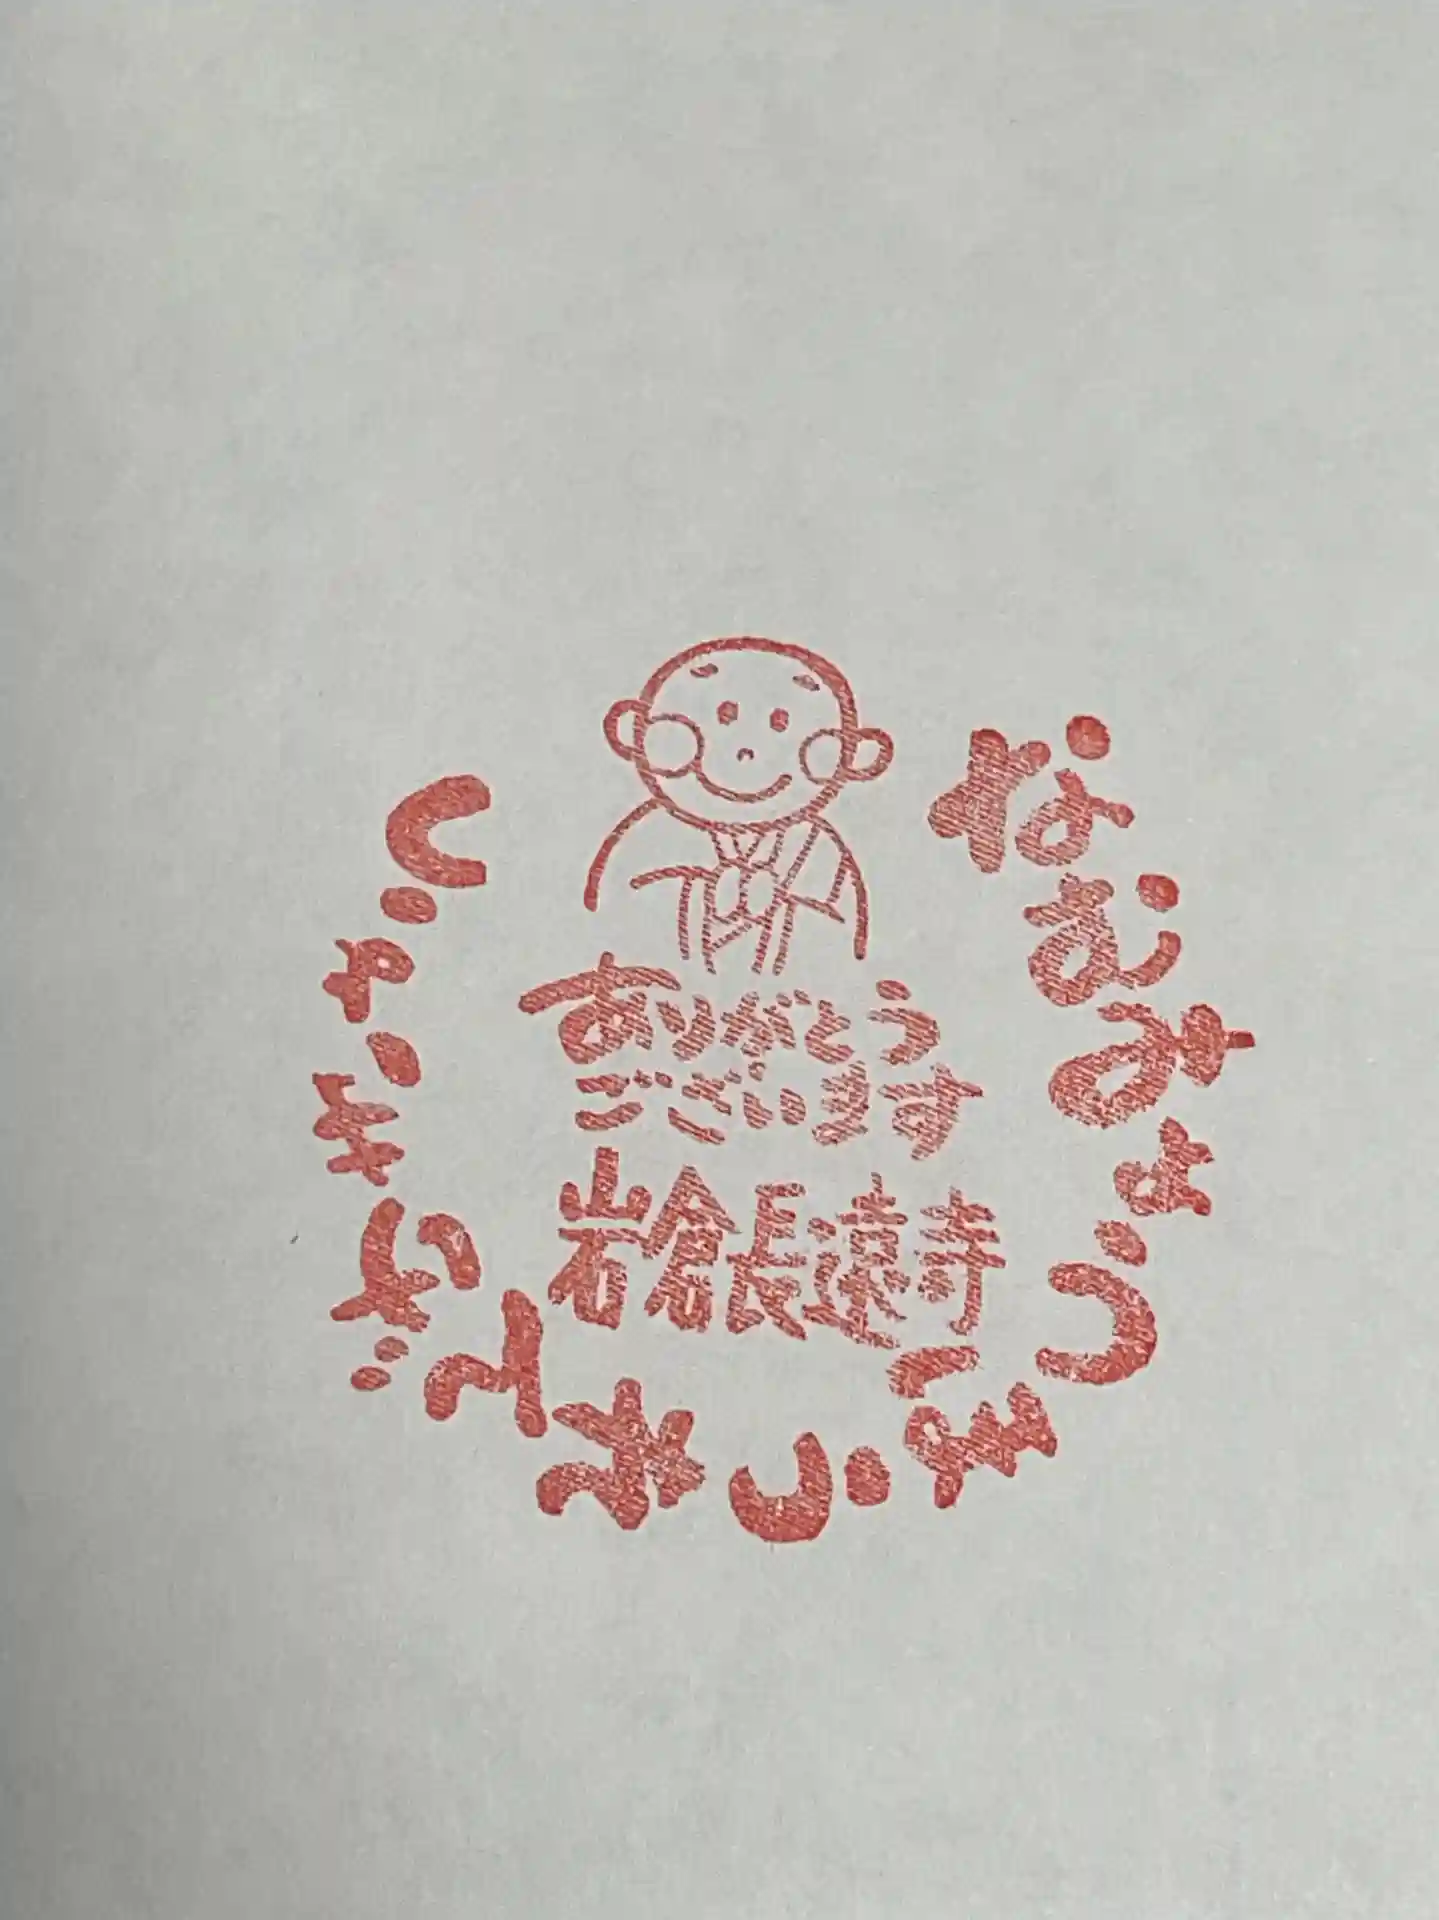 なむみょうほうれんげきょう
ありがとう
ございます
岩倉長遠寺